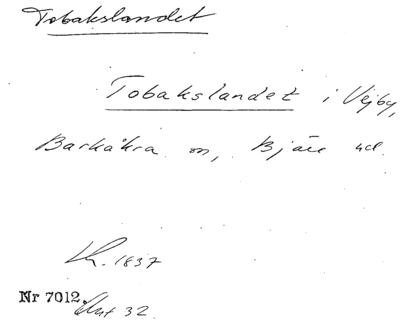 Tobakslandet
Tobakslandet i Vejby,
Barkåkra sn, Bjäre hd.
Lh. 1837
Nr 7012. Akt 32.